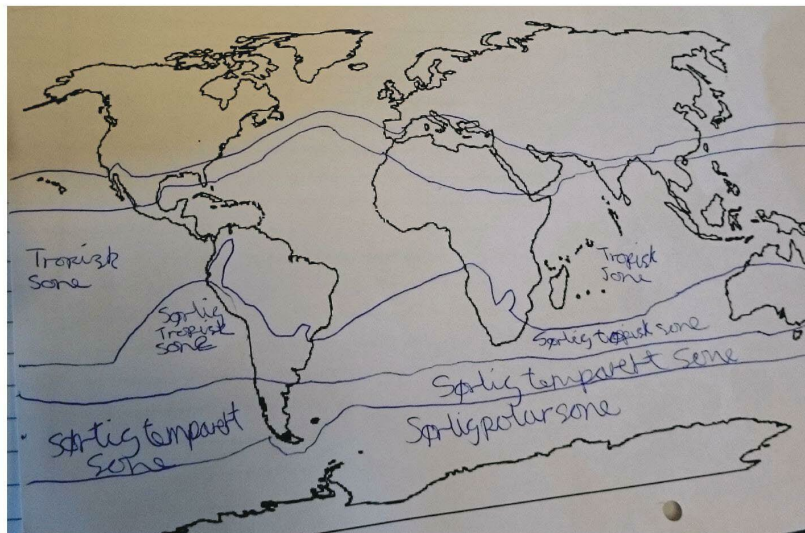 Tropisk
Sone
Sørlig
Tropisk
sone
Tropisk
Sone
Sørlig tropisk sone
Sørlig temparert sone
Sørlig temparert
sone
Sørlig polar sone